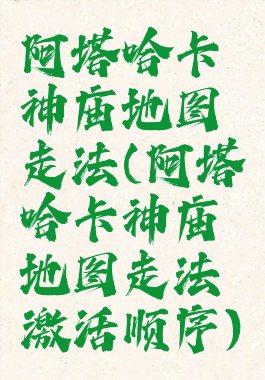 阿塔哈卡
神庙地图
走法(阿塔
哈卡神庙
地图走法
激活顺序)